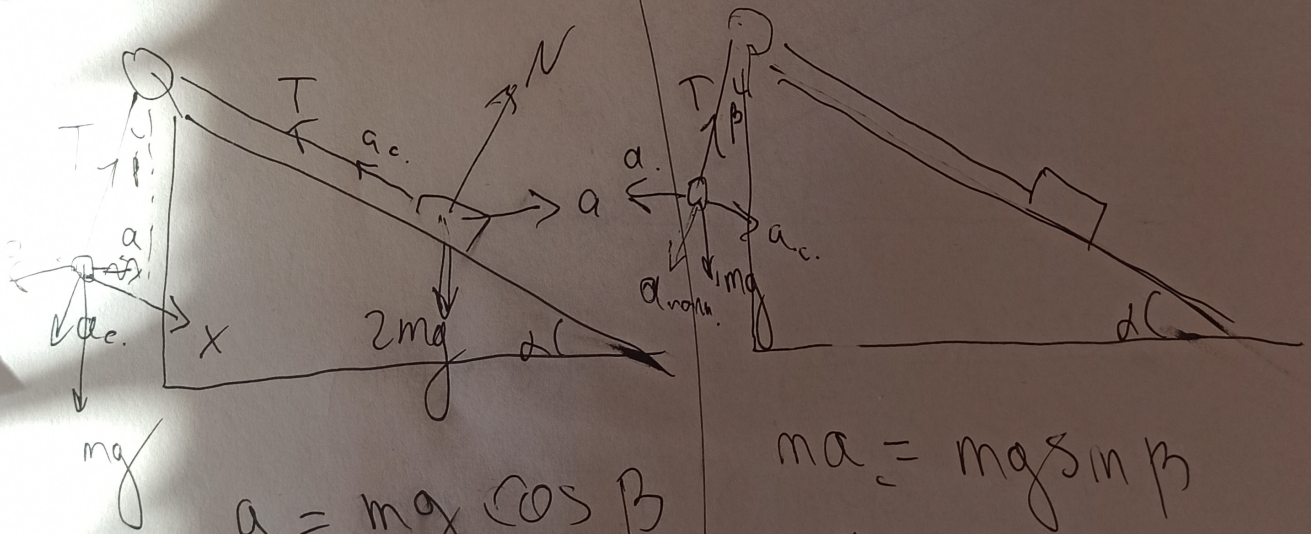 T
N
a c.
a
T
β
a
a c.
X
mg
2mg
α
a = mg cos β
T
β
a.
a c.
mg
α
ma c = mg sin β